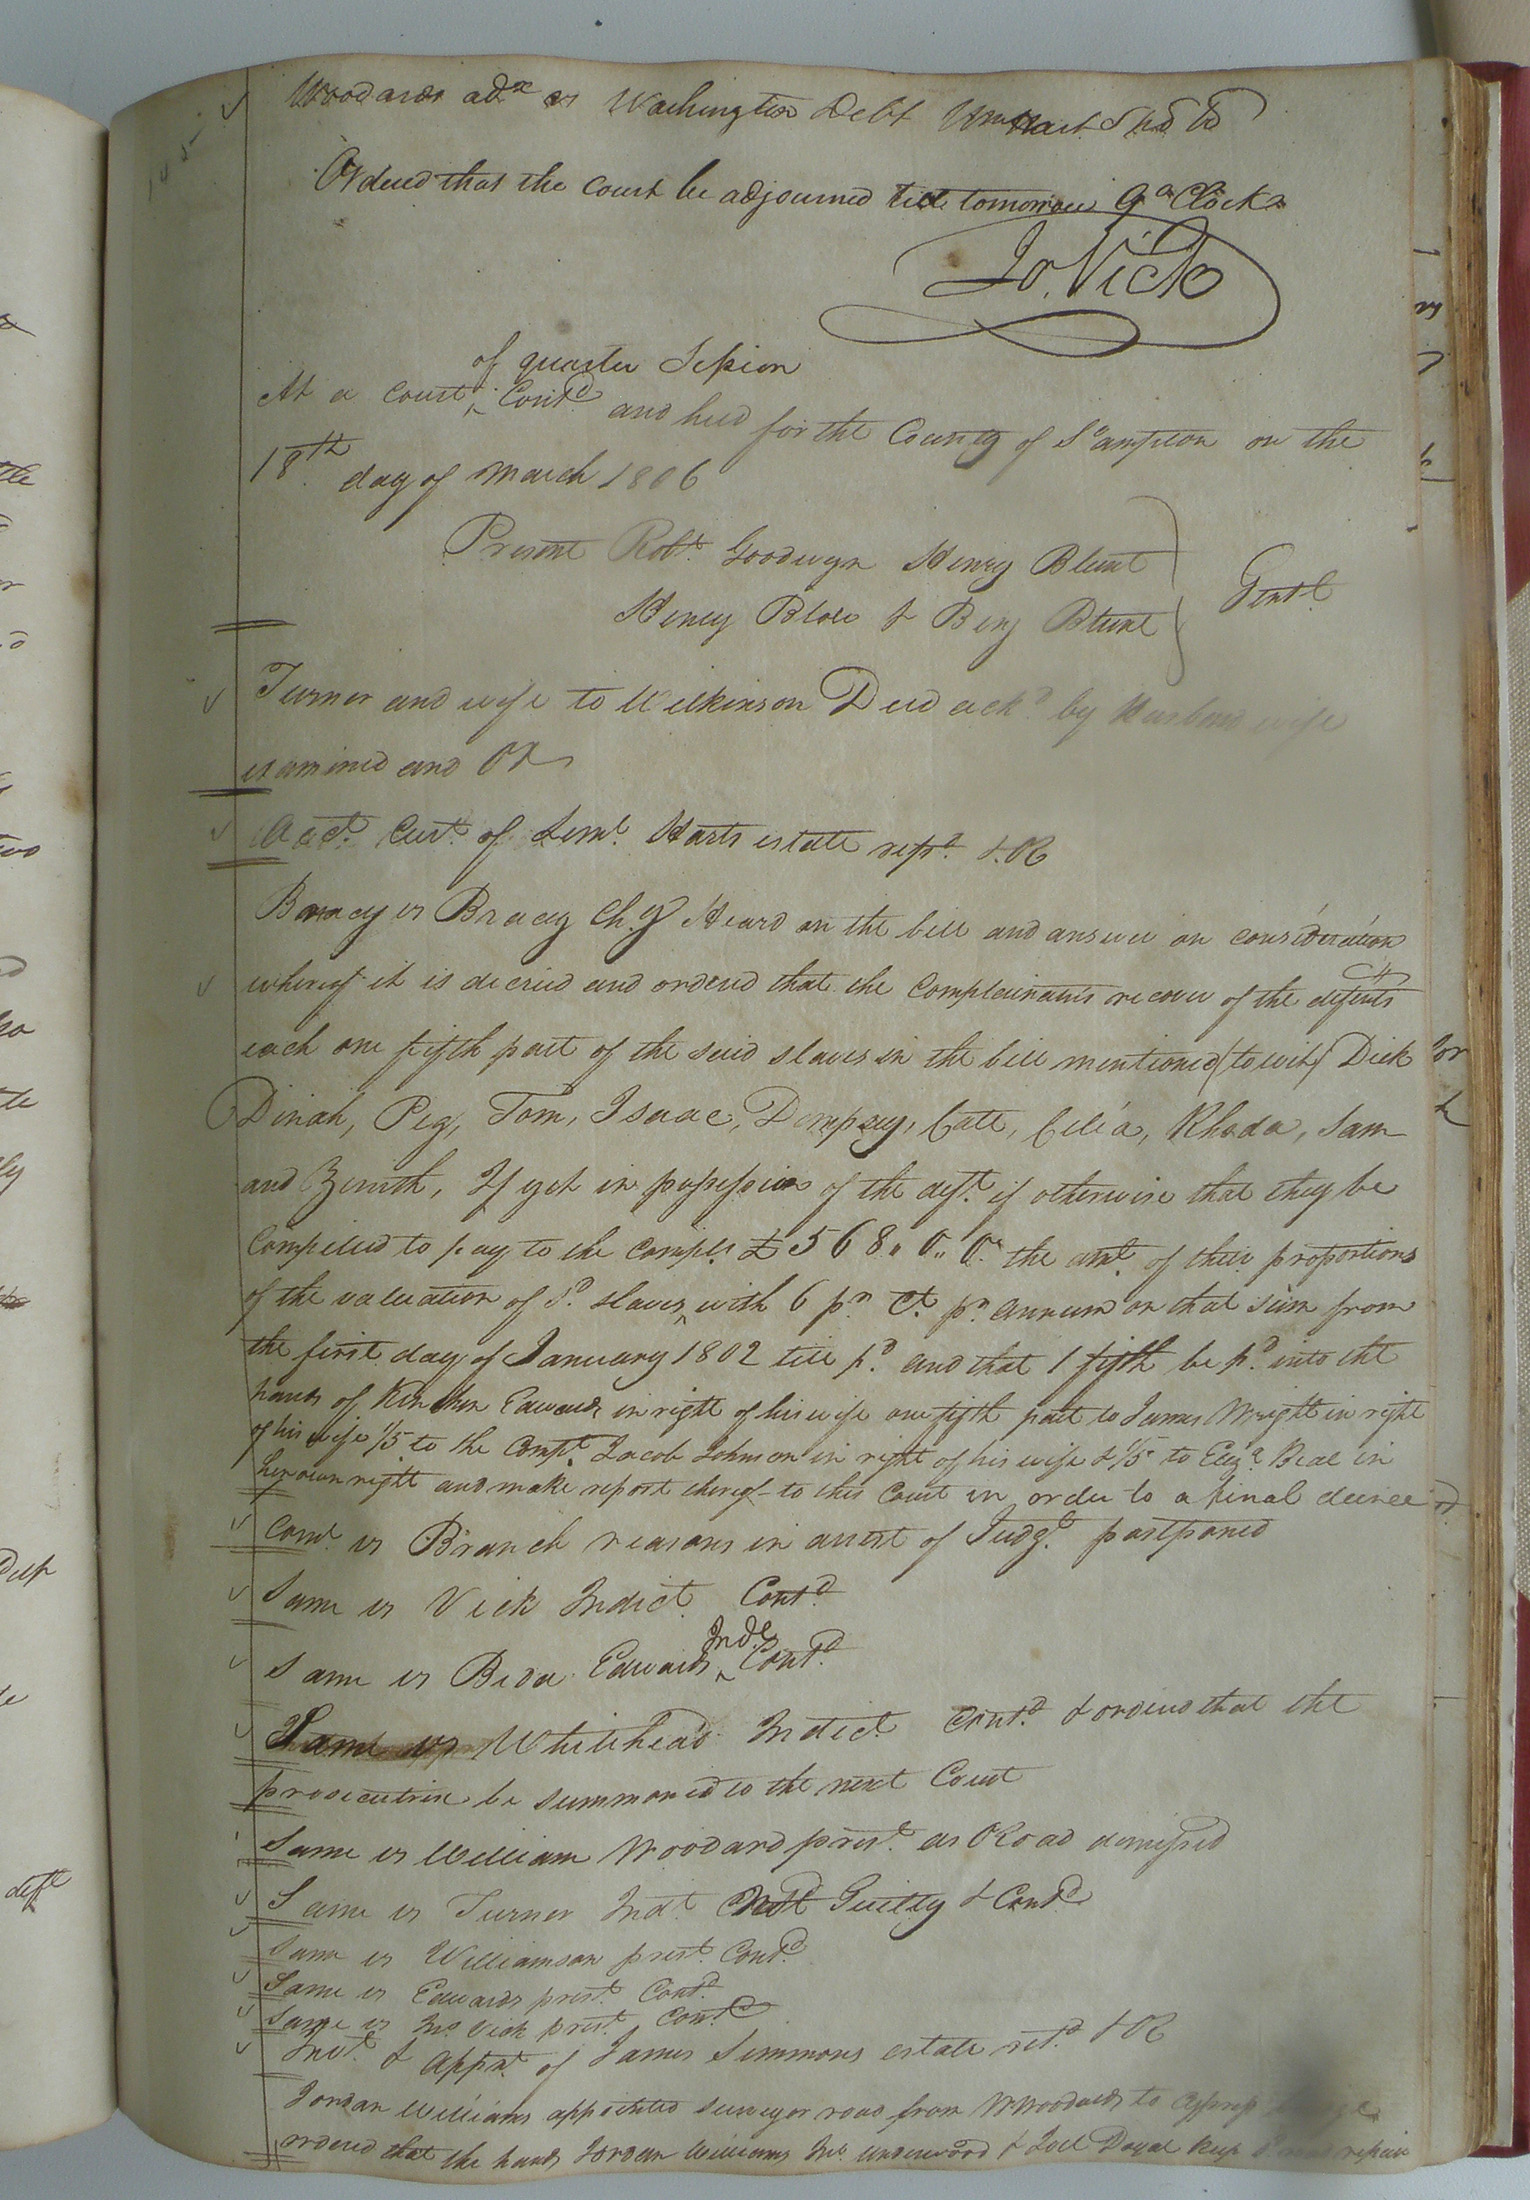 Woodards adx vs Washington Debt Wm Hart
Ordered that the court be adjourned till tomorrow 9 o Clock
Jo. Vick
of quarter Session
At a Court Contd and held for the County of So ampton on the
18th day of March 1806
Present Robt. Goodwyn Henry Blunt
Henry Blow & Benj Blunt Gentl.
Turner and wife to Wilkinson Deed ackd. by Husband wife
examined and OR
Acct. Curt. of Leml. Harts estate rept. & OR
Bracey vs Bracey Ch.y Heard on the bill and answer on consideration
whereof it is decreed and ordered that the Complainants recover of the defents
each one fifth part of the said slaves in the bill mentioned (to wit) Dick
Dinah, Peg, Tom, Isaac, Dempsey, Cate, Celia, Rhoda, Sam
and Zenith, If yet in possession of the deft. if otherwise that they be
Compelled to pay to the Complt. £ 568 " 0 " 0 the amt. of their proportions
of the valuation of sd. slaves with 6 pr Ct. pr annum on that sum from
the first day of January 1802 till pd. and that 1 fifth be pd. into the
hands of Kinchen Edwards in right of his wife one fifth part to James Wright in right
of his wife 1/5 to the Complt. Jacob Johnson in right of his wife & 1/5 to Eliza. Beal in
her own right and make report thereof to this Court in order to a final decree
Comt. vs Branch reasons in arrest of Judgt. postponed
Same vs Vick Indict. Contd
Same vs Beda Edwards Indt Contd.
Same vs Whitehead Indict. Contd. & ordered that the
prosecutrix be summoned to the next Court
Same vs William Woodard prest. as O Road dismissed
Same vs Turner Indt. Not Guilty & Contd
Same vs Williamson prest. Contd.
Same vs Edwards prest. Contd.
Same vs Jno. Vick prest. Contd
Invt. & Appnt. of James Simmons estate retd. & OR
Jordan Williams appointed surveyor road from Woodards to
ordered that the hands Jordan Williams Jno. Underwood & Joel Doyal keep repair